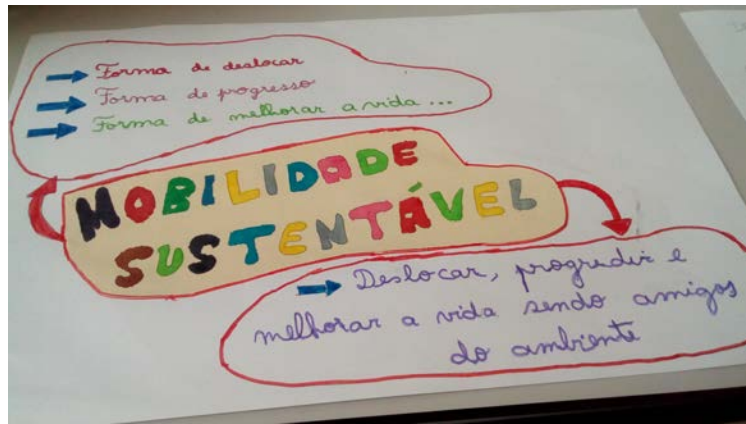 Forma de deslocar
Forma de progresso
Forma de melhorar a vida ...
MOBILIDADE
SUSTENTÁVEL
Deslocar, progredir e
melhorar a vida sendo amigos
do ambiente